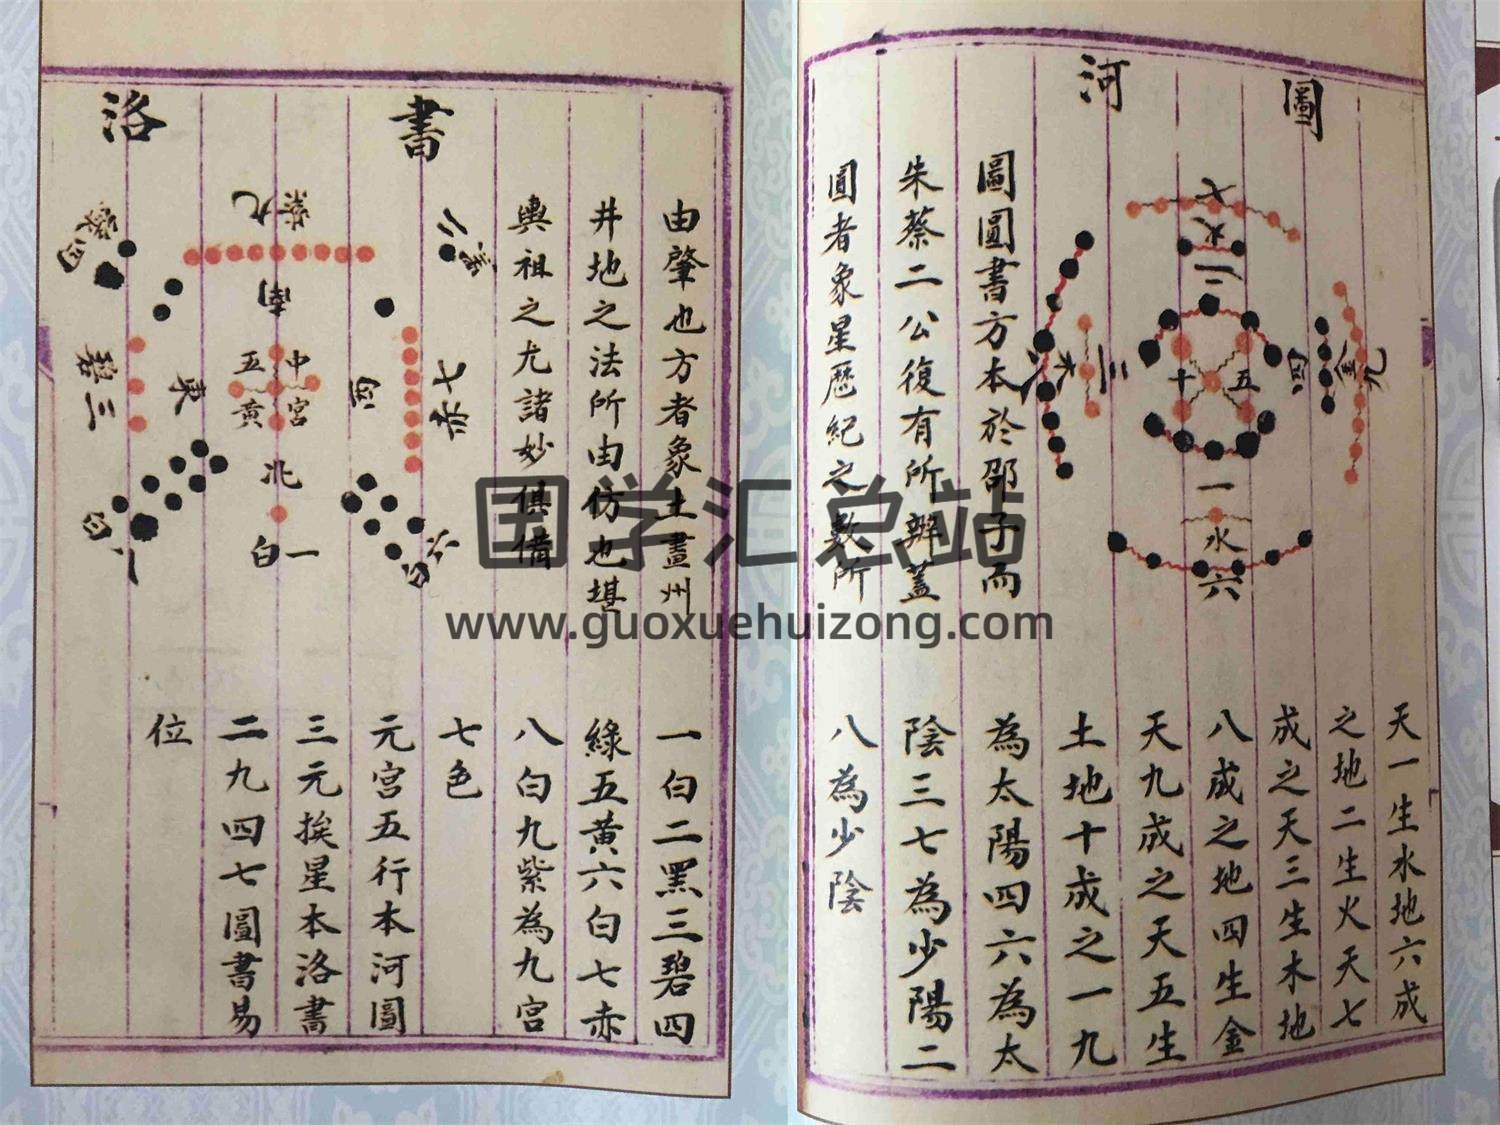 河圖
七
火
二
八
木
三
十五
四
金
九
一
水
六
圖圓書方本於邵子而
朱蔡二公復有所辨蓋
圓者象星歷紀之數所
天一生水地六成
之地二生火天七
成之天三生木地
八成之地四生金
天九成之天五生
土地十成之一九
為太陽四六為太
陰三七為少陽二
八為少陰
洛書
九紫
南
二黑
四綠
三碧
東
中宮
五黃
西
七赤
北
一白
八白
六白
由肇也方者象土畫州
井地之法所由仿也堪
輿祖之尤諸妙俱備
一白二黑三碧四
綠五黃六白七赤
八白九紫為九宮
七色
元宮五行本河圖
三元挨星本洛書
二九四七圖書易
位
国学汇总站
www.guoxuehuizong.com